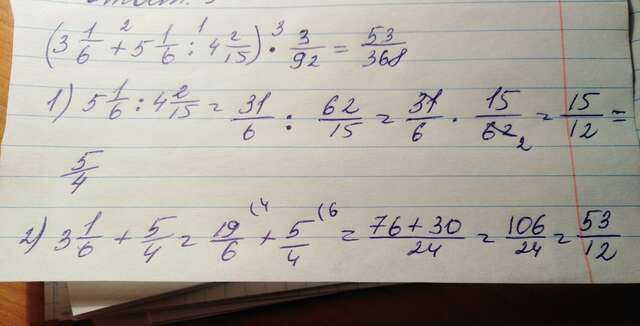 (3 1/6 + 5 1/6 : 4 2/15) · 3/92 = 53/368
1) 5 1/6 : 4 2/15 = 31/6 : 62/15 = 31/6 · 15/62 2 = 15/12 =
5/4
2) 3 1/6 + 5/4 = 19/6 (4 + 5/4 (6 = 76+30/24 = 106/24 = 53/12